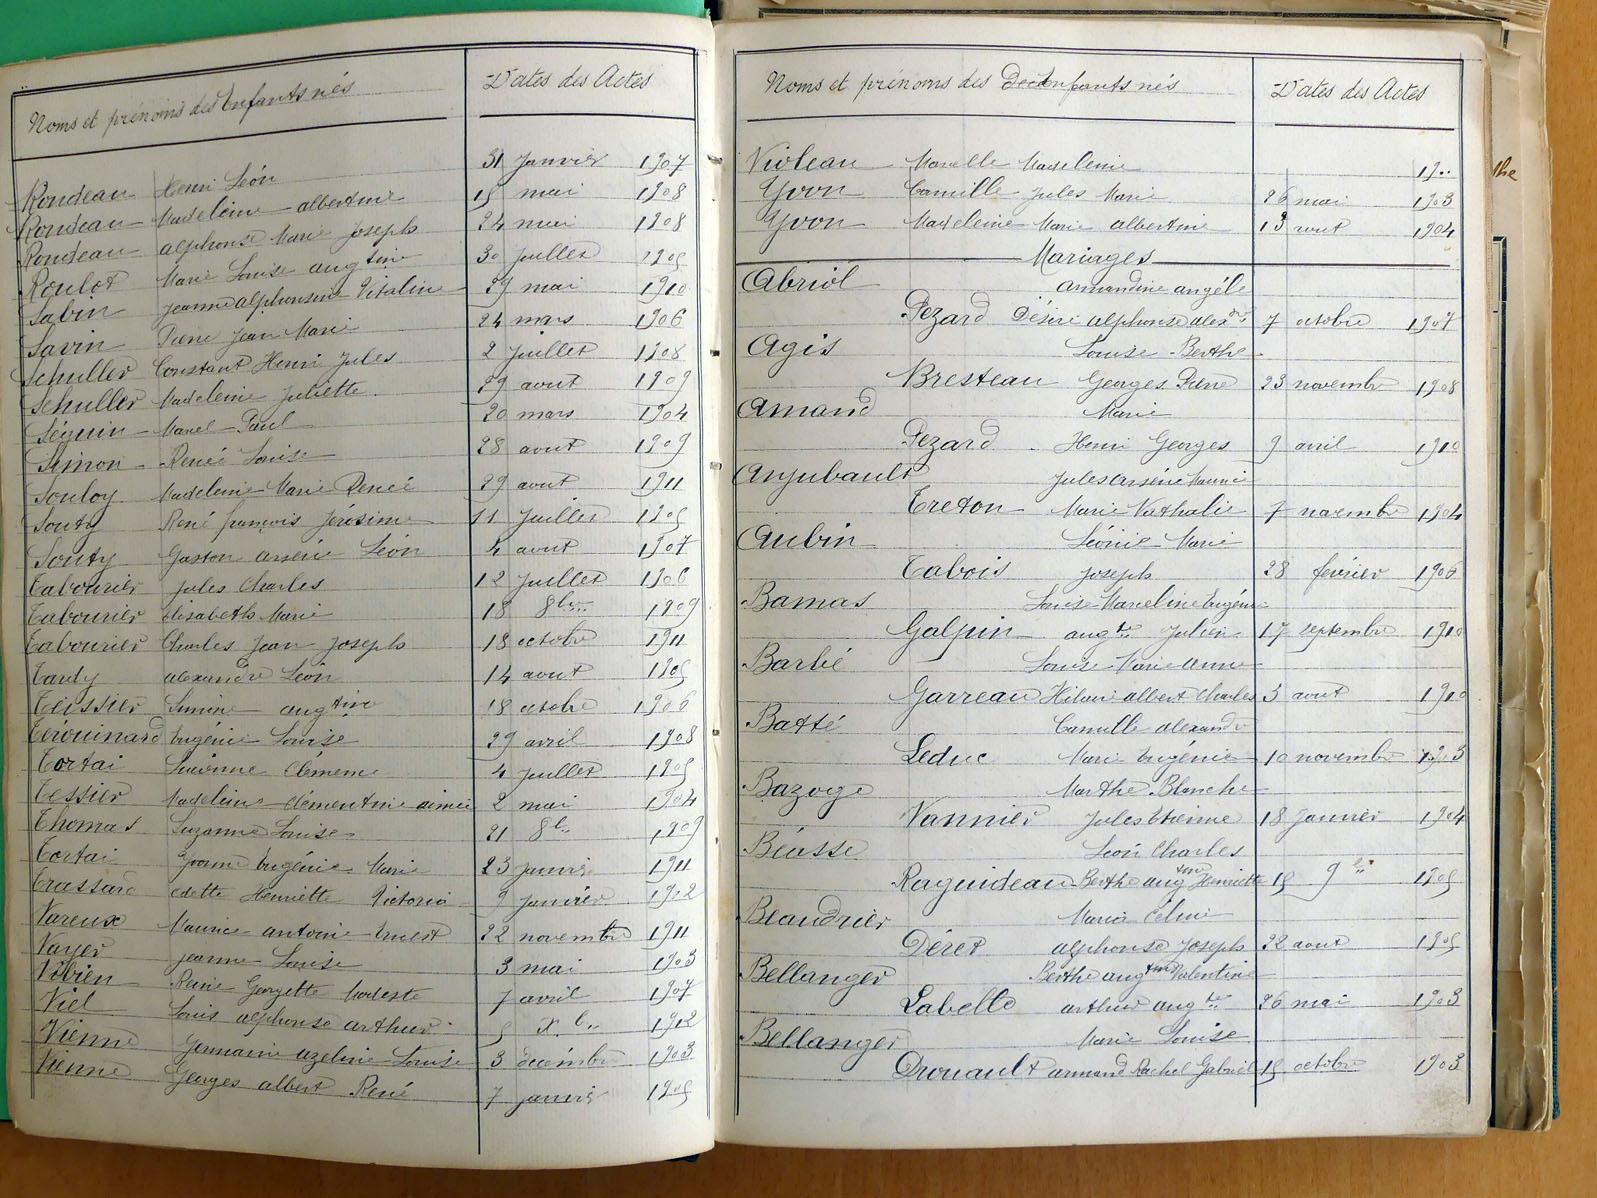 Noms et prénoms des Enfants nés Dates des Actes
Rondeau Henri Léon 31 Janvier 1907
Rondeau Madeleine albertine 15 mai 1908
Rondeau alphonse Marie Joseph 24 mai 1908
Roulot Marie Louise augtine 30 juillet 1905
Sabin Jeanne alphonsine Vitaline 29 mai 1910
Savin Pierre Jean Marie 24 mars 1906
Schuller Constant Henri Jules 2 Juillet 1908
Schuller Madeleine Juliette 29 aout 1909
Séguin Marcel Paul 20 mars 1904
Simon Renée Louise 28 aout 1909
Souloy Madeleine Marie Renée 29 aout 1911
Souty René françois Jérosime 11 Juillet 1905
Souty Gaston arsène Léon 4 aout 1907
Tabourier Jules Charles 12 Juillet 1906
Tabourier Elisabeth Marie 18 8bre 1909
Tabourier Charles Jean Joseph 18 octobre 1911
Tardy alexandre Léon 14 aout 1905
Teissier Simone augtine 18 octobre 1906
Térouinard Eugénie Louise 29 avril 1908
Tortai Lucienne Clémence 4 Juillet 1905
Tessier Madeleine clémentine aimée 2 mai 1904
Thomas Suzanne Louise 21 8b 1909
Tortai Yvonne Eugénie Marie 23 janvier 1911
Trassard odette Henriette Victoria 9 janvier 1912
Vareux Maurice antoine Ernest 22 novembre 1911
Vayer Jeanne Louise 3 mai 1903
Vivien Reine Georgette Modeste 7 avril 1907
Viel Louis alphonse arthur 5 Xb 1912
Vienne Germaine azeline Louise 3 décembre 1903
Vienne Georges albert René 7 janvier 1905
Noms et prénoms des Enfants nés Dates des Actes
Violeau Marcelle Madeleine 19..
Yvon Camille Jules Marie 26 mai 1903
Yvon Madeleine Marie albertine 13 aout 1904
Mariages
Abriol armandine angéle
Pezard Désiré alphonse alexdre 7 octobre 1907
Agis Louise Berthe
Bresteau Georges Pierre 23 novembre 1908
Amand Marie
Pezard Henri Georges 9 avril 1910
Anjubault Jules arsène
Treton Marie Nathalie 7 novembre 1904
Aubin Léonie Marie
Tabois Joseph 28 février 1906
Bamas Louise Marceline Eugénie
Galpin augte Julien 17 septembre 1910
Barbé Louise Marie anne
Garreau Hilaire albert Charles 3 aout 1910
Batté Camille alexandre
Leduc Marie Eugénie 10 novembre 1903
Bazoge Marthe Blanche
Vannier Jules Etienne 18 janvier 1904
Béasse Léon Charles
Raguideau Berthe augtine Henriette 15 9b 1905
Beaudrier Maria Célina
Déret alphonse Joseph 22 aout 1905
Bellanger Berthe augtine Valentine
Labelle arthur augte 26 mai 1903
Bellanger Marie Louise
Drouault armand Rachel Gabriel 15 octobre 1903